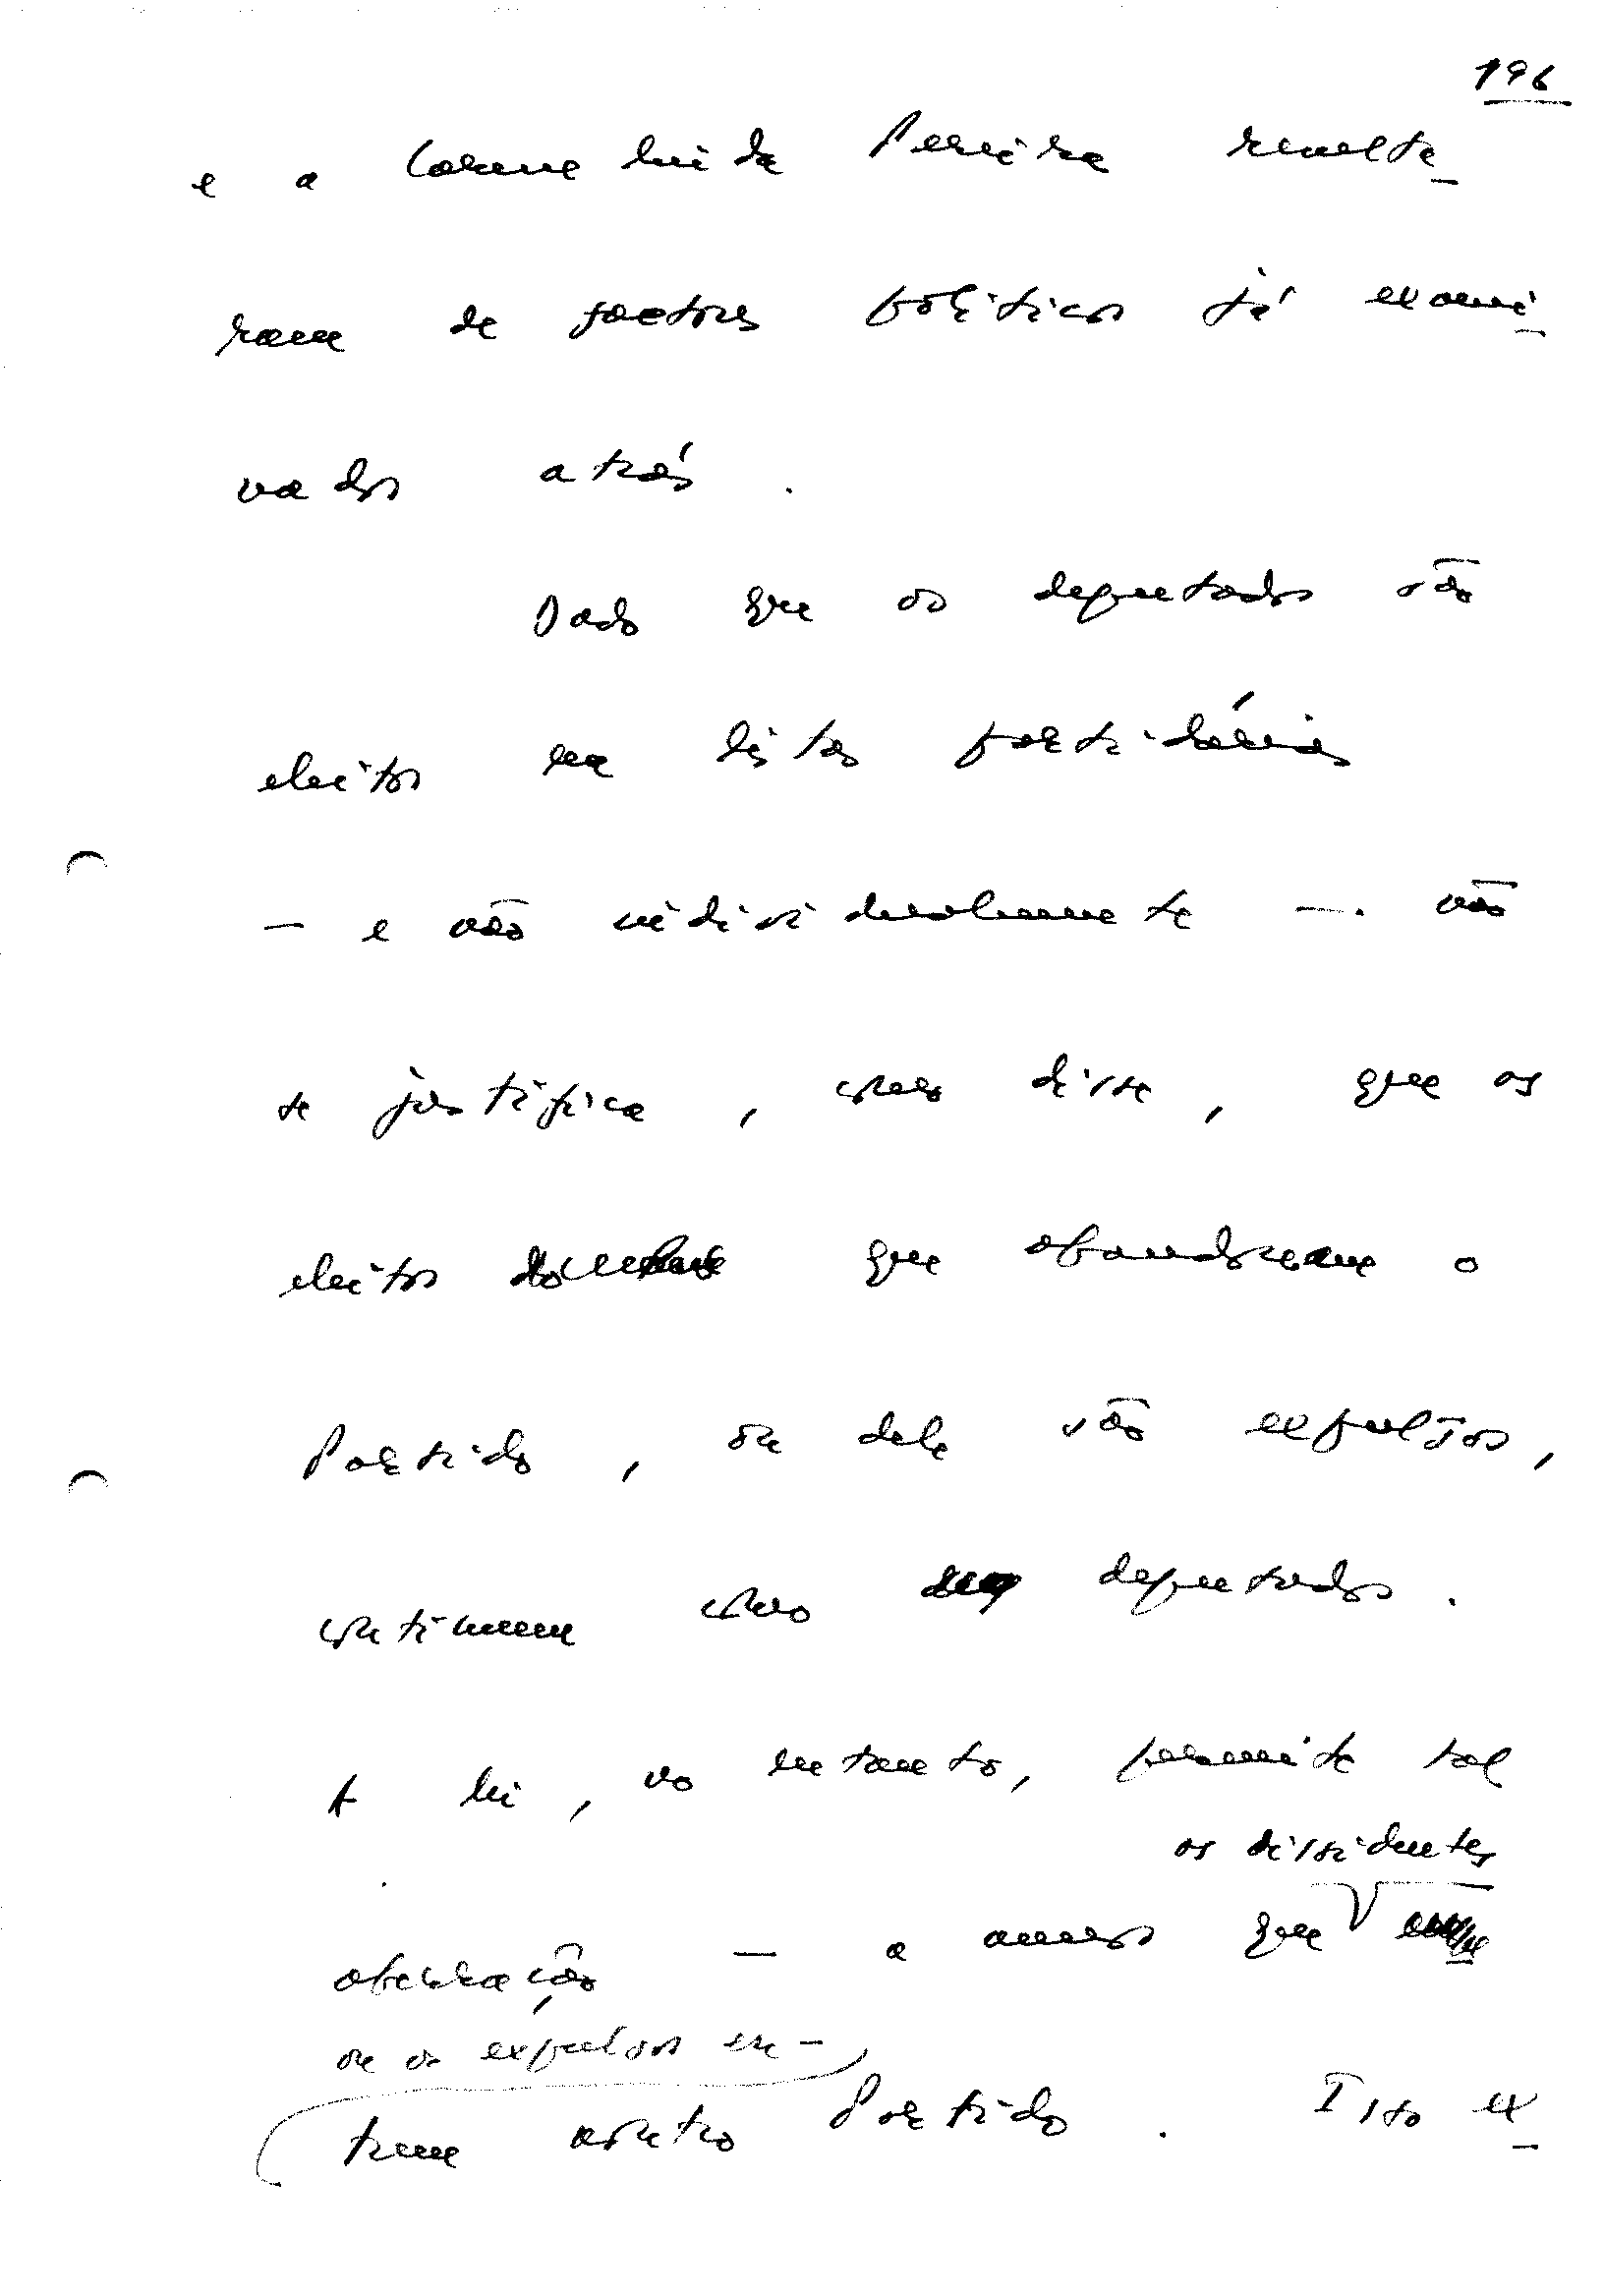 196
e a Carmelinda Pereira resulta-
ram de factores políticos já exami-
nados atrás.
Dado que os deputados são
eleitos em listas partidárias
— e não individualmente —. não
se justifica, como disse, que os
eleitos que abandonam o
Partido, ou dele são expulsos,
continuem como deputados.
A lei, no entanto, permite tal
os dissidentes
aberração — a menos que
ou os expulsos en-
trem noutro Partido. Isto ex-